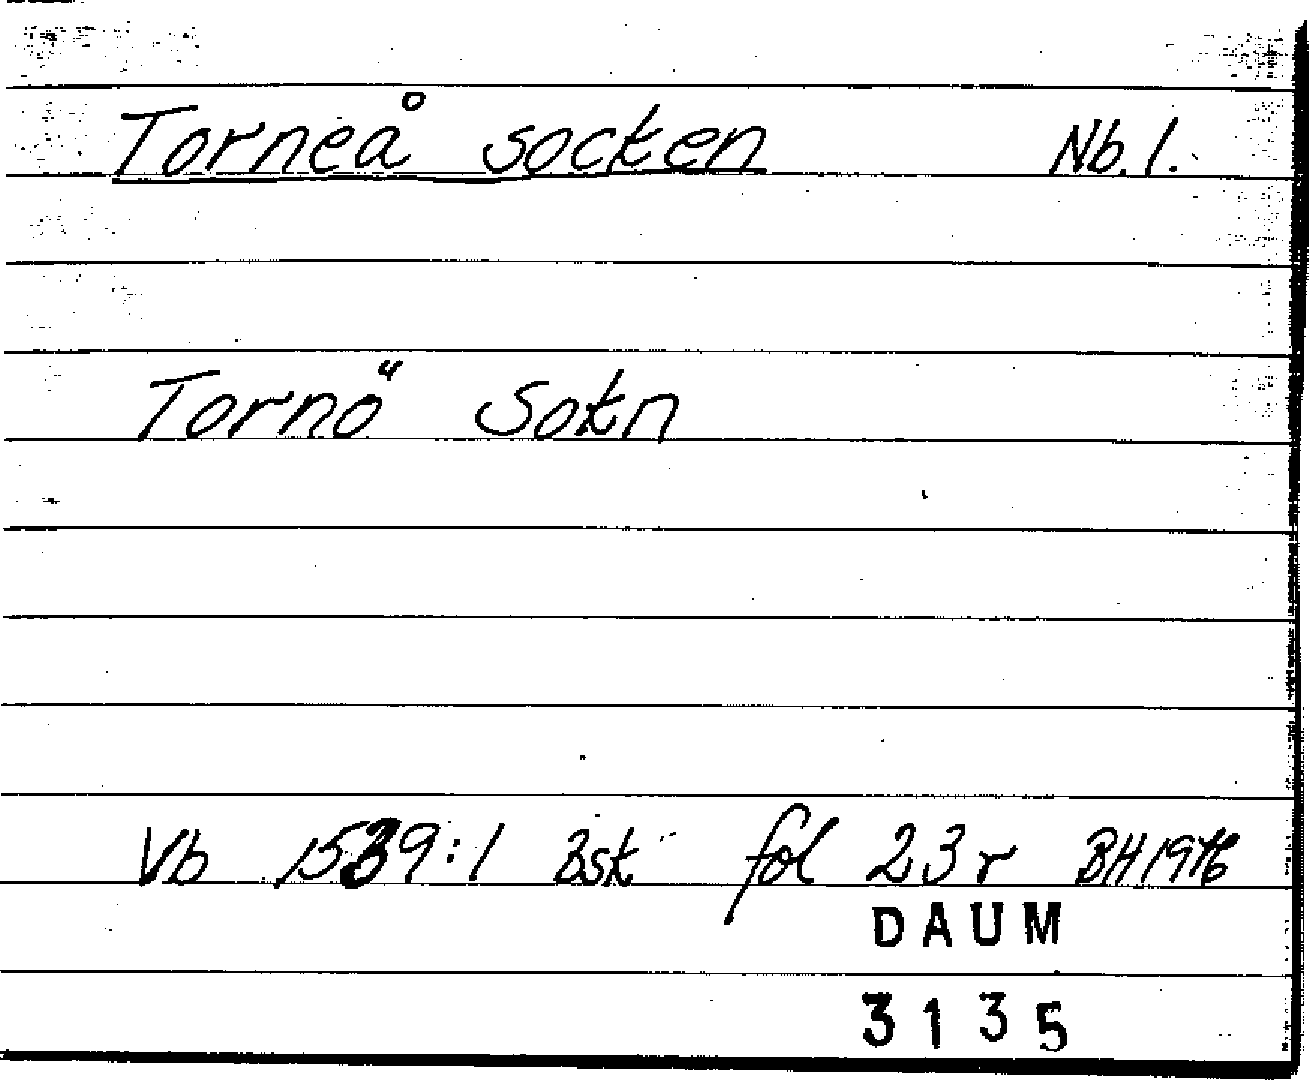 Torneå socken Nb. l.
Tornö Sokn
Vb 1539:1 Bsk fol 23 r BH 1976
DAUM
3135